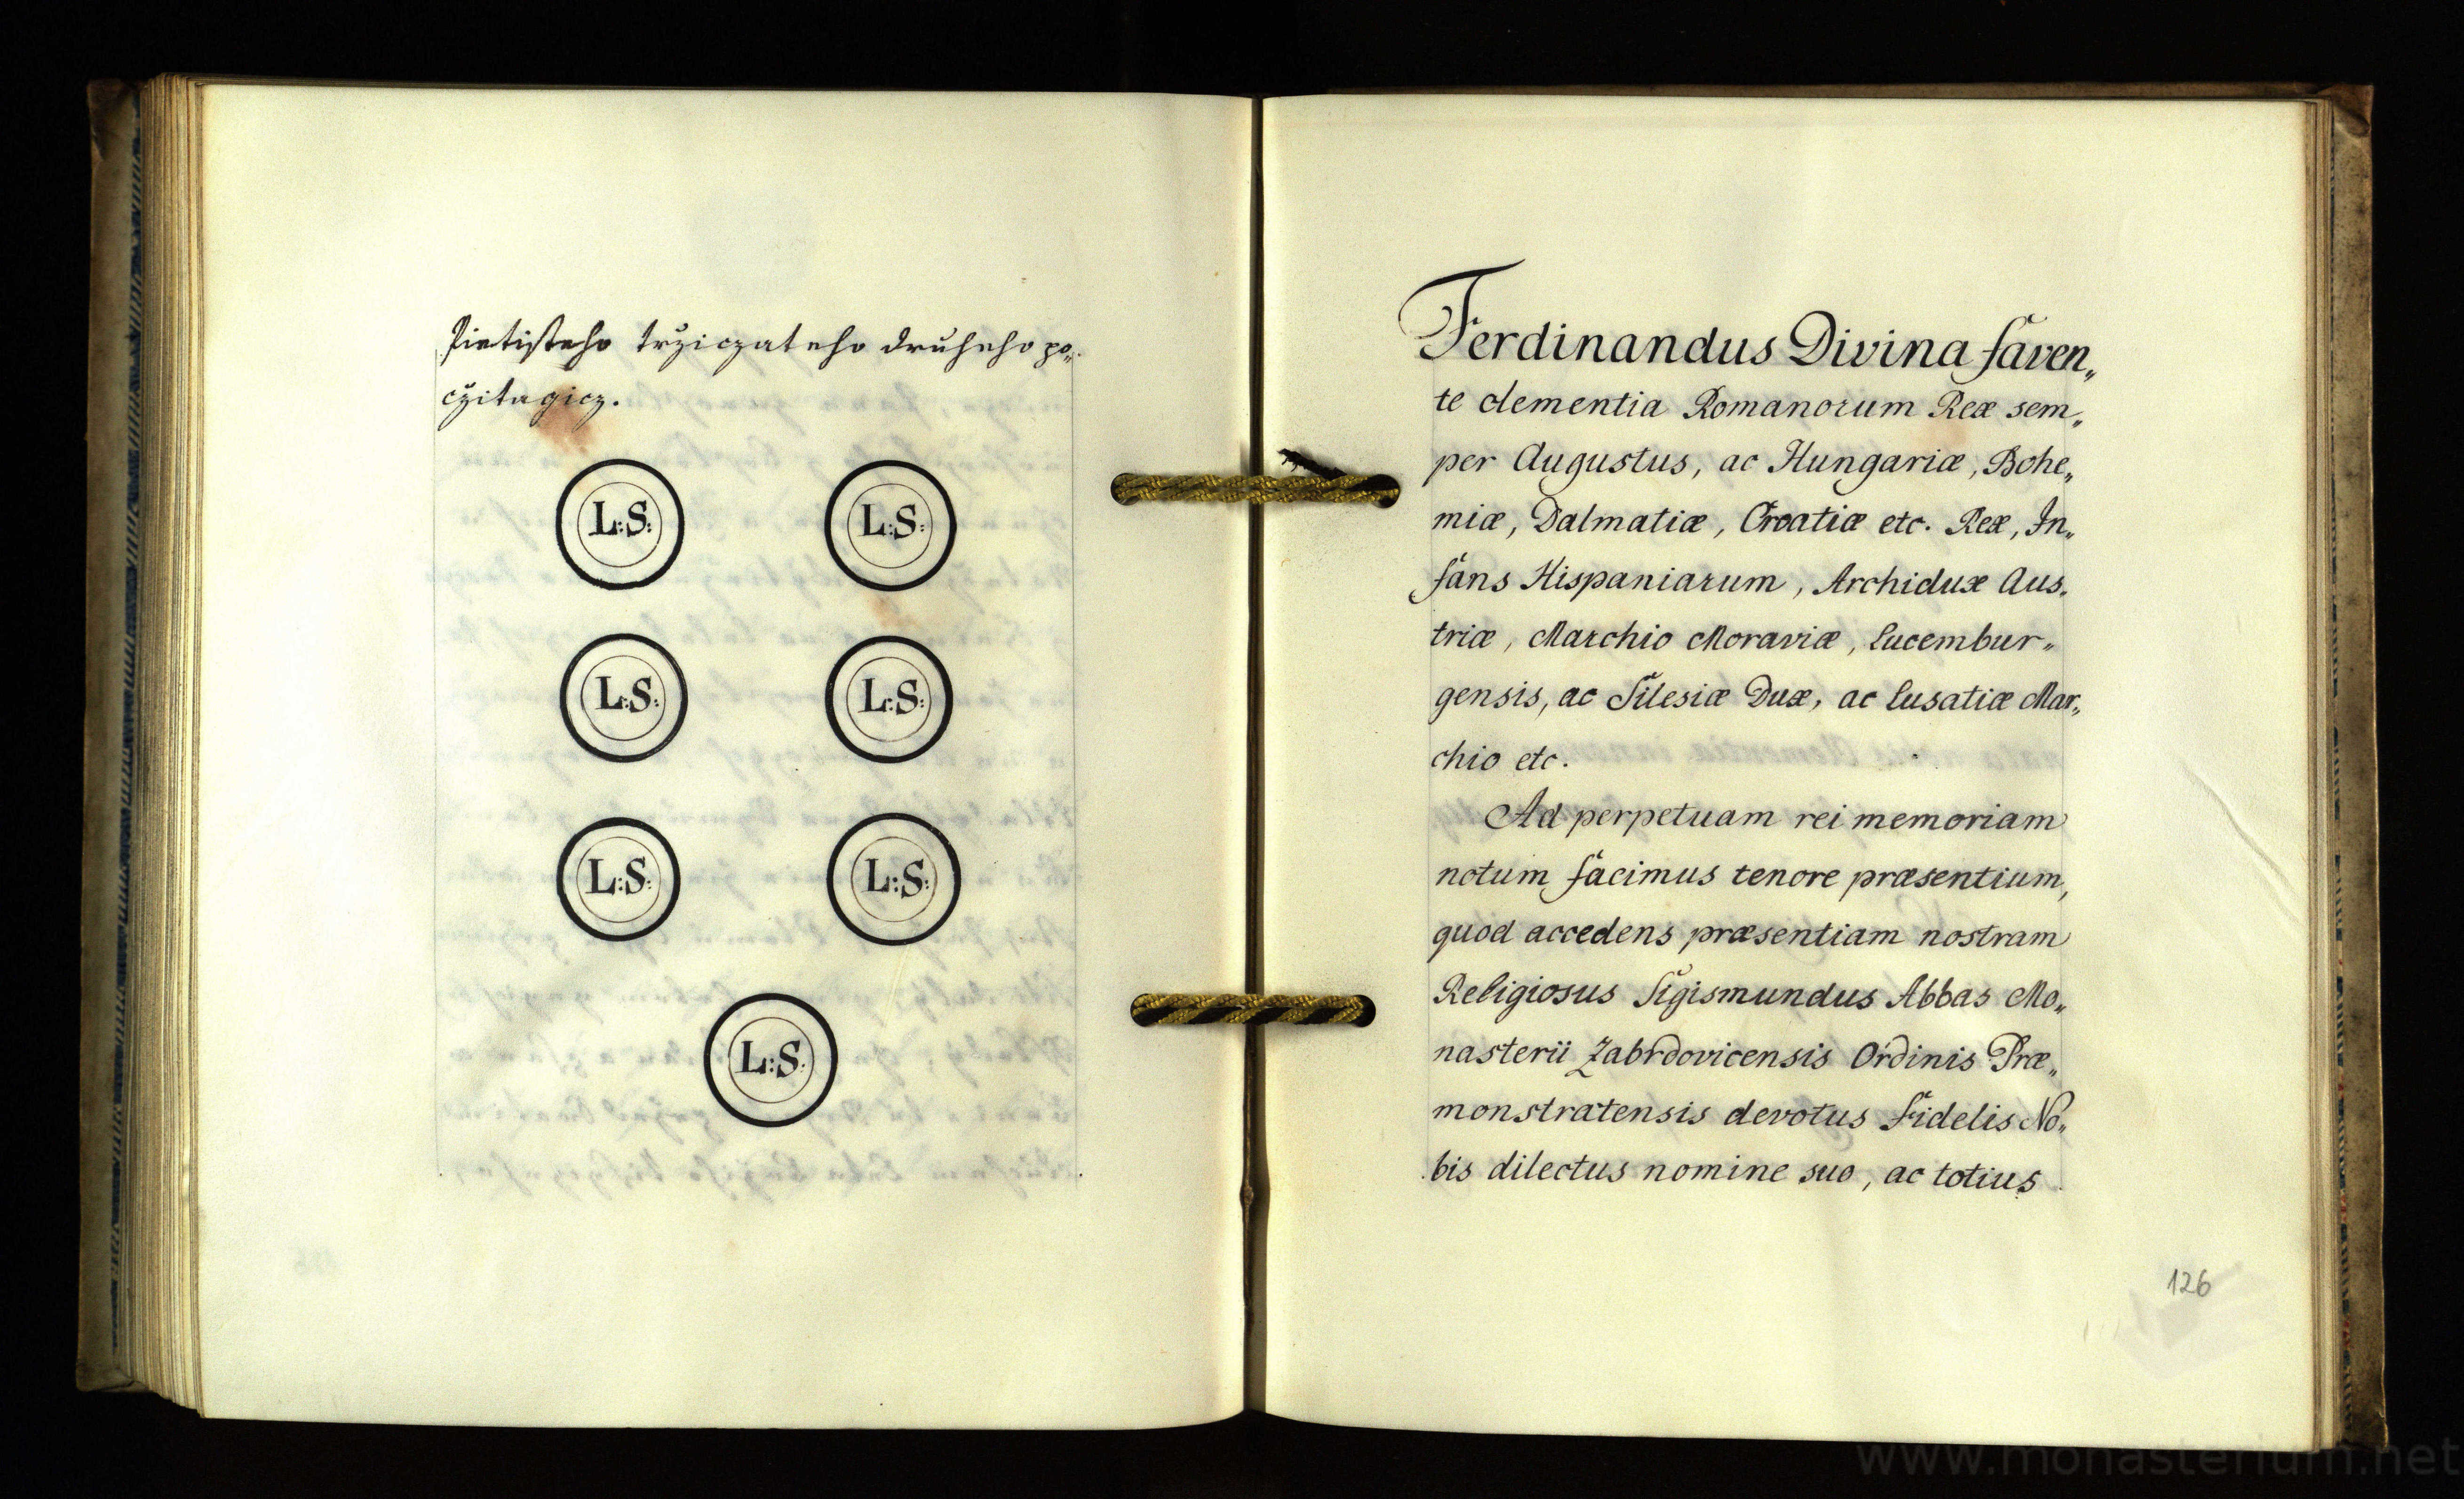 Pietisteho trziczateho druheho po„
czitagicz.
L:S:
L:S:
L:S:
L:S:
L:S:
L:S:
L:S:
Ferdinandus Divina faven„
te clementia Romanorum Rex sem„
per Augustus, ac Hungariæ, Bohe„
miæ, Dalmatiæ, Croatiæ etc. Rex, In„
fans Hispaniarum, Archidux Aus„
triæ, Marchio Moraviæ, Lucembur„
gensis, ac Silesiæ Dux, ac Lusatiæ Mar„
chio etc.
Ad perpetuam rei memoriam
notum facimus tenore præsentium,
quod accedens præsentiam nostram
Religiosus Sigismundus Abbas Mo„
nasterii Zabrdovicensis Ordinis Præ„
monstratensis devotus Fidelis No„
bis dilectus nomine suo, ac totius
126
www.monasterium.net